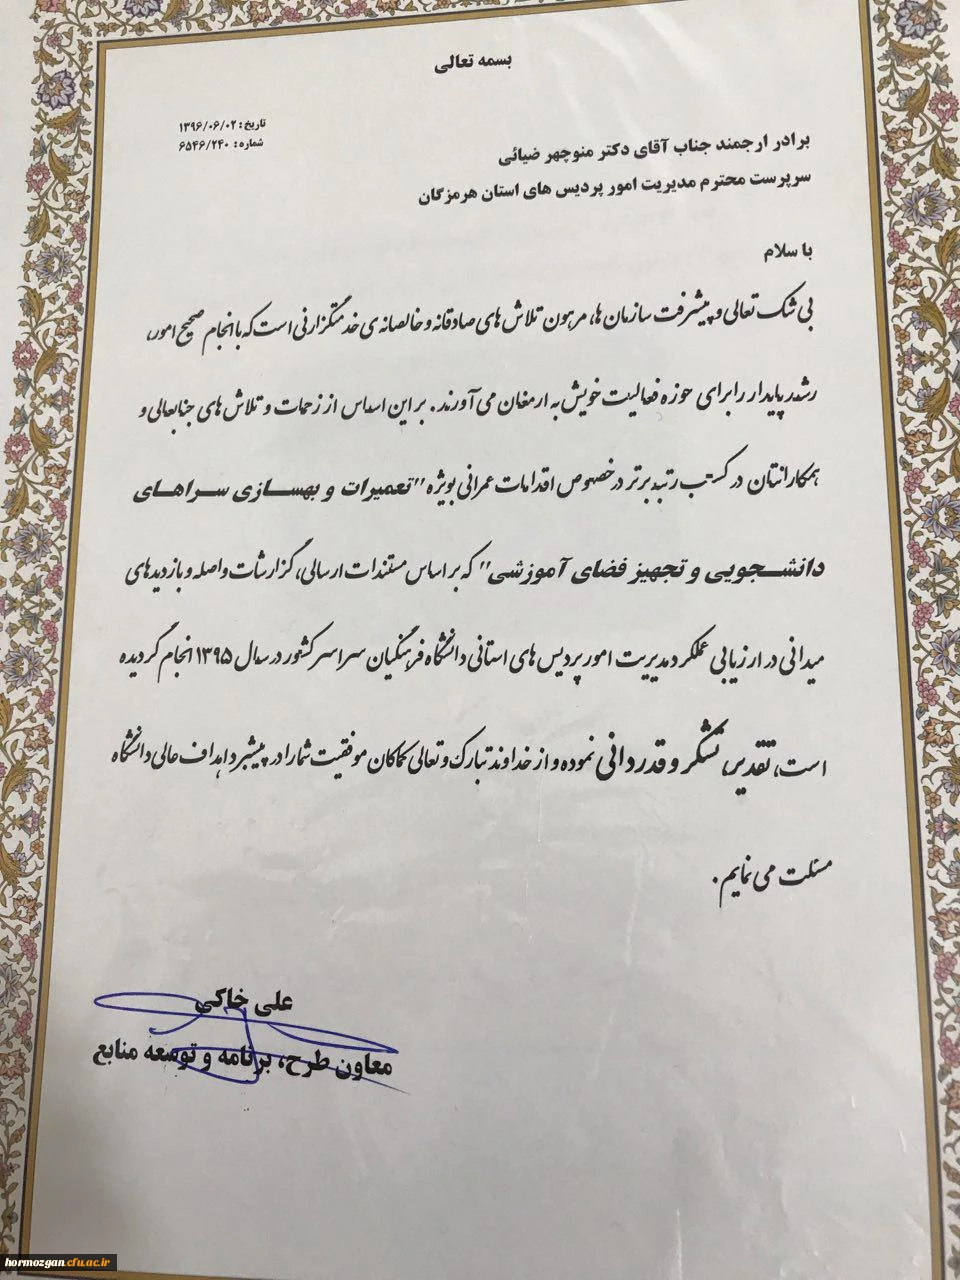 بسمه تعالی
تاریخ: ۱۳۹۶/۰۶/۰۲
شماره: ۶۵۴۶/۲۴۰
برادر ارجمند جناب آقای دکتر منوچهر ضیائی
سرپرست محترم مدیریت امور پردیس های استان هرمزگان
با سلام
بی شک تعالی و پیشرفت سازمان ها، مرهون تلاش های صادقانه و خالصانه ی خدمتگزارانی است که با انجام صحیح امور،
رشد پایدار را برای حوزه فعالیت خویش به ارمغان می آورند. بر این اساس از زحمات و تلاش های جنابعالی و
همکارانتان در کسب رتبه برتر در خصوص اقدامات عمرانی بویژه "تعمیرات و بهسازی سراهای
دانشجویی و تجهیز فضای آموزشی" که بر اساس مستندات ارسالی، گزارشات واصله و بازدیدهای
میدانی در ارزیابی عملکرد مدیریت امور پردیس های استانی دانشگاه فرهنگیان سراسر کشور در سال ۱۳۹۵ انجام گردیده
است، تقدیر، تشکر و قدردانی نموده و از خداوند تبارک و تعالی کماکان موفقیت شما را در پیشبرد اهداف عالی دانشگاه
مسئلت می نمایم.
علی خاکی
معاون طرح، برنامه و توسعه منابع
hormozgan.cfu.ac.ir